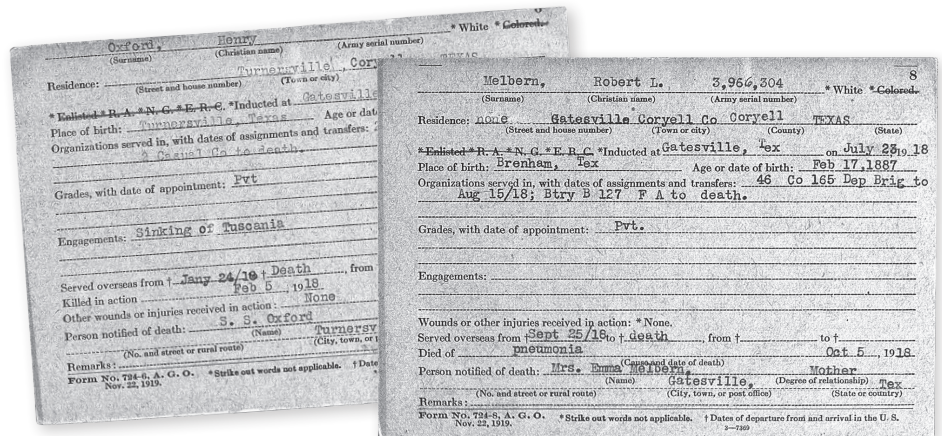 * White * Colored.
Oxford, Henry
(Surname) (Christian name) (Army serial number)
Residence: Turnersville, Coryell TEXAS
(Street and house number) (Town or city)
* Enlisted * R. A. * N. G. * E. R. C. *Inducted at Gatesville
Place of birth: Turnersville, Texas Age or date
Organizations served in, with dates of assignments and transfers:
Casual Co to death.
Grades, with date of appointment: Pvt
Engagements: Sinking of Tuscania
Served overseas from † Jany 24/18 † Death, from
Killed in action Feb 5, 1918
Other wounds or injuries received in action: None
Person notified of death: S. S. Oxford
(Name) Turnersv
(No. and street or rural route) (City, town, or p
Remarks:
Form No. 724-6, A. G. O. *Strike out words not applicable. † Date
Nov. 22, 1919.
8
Melbern, Robert L. 3,966,304 * White * Colored.
(Surname) (Christian name) (Army serial number)
Residence: none Gatesville Coryell Co Coryell TEXAS
(Street and house number) (Town or city) (County) (State)
*Enlisted * R. A. * N. G. * E. R. C. *Inducted at Gatesville, Tex on July 23 1918
Place of birth: Brenham, Tex Age or date of birth: Feb 17,1887
Organizations served in, with dates of assignments and transfers: 46 Co 165 Dep Brig to
Aug 15/18; Btry B 127 F A to death.
Grades, with date of appointment: Pvt.
Engagements:
Wounds or other injuries received in action: * None.
Served overseas from † Sept 25/18 to † death, from † to †
Died of pneumonia Oct 5, 1918
(Cause and date of death)
Person notified of death: Mrs. Emma Melbern, Mother
(Name) (Degree of relationship)
Gatesville, Tex
(No. and street or rural route) (City, town, or post office) (State or country)
Remarks:
Form No. 724-8, A. G. O. *Strike out words not applicable. † Dates of departure from and arrival in the U. S.
Nov. 22, 1919. 3—7369